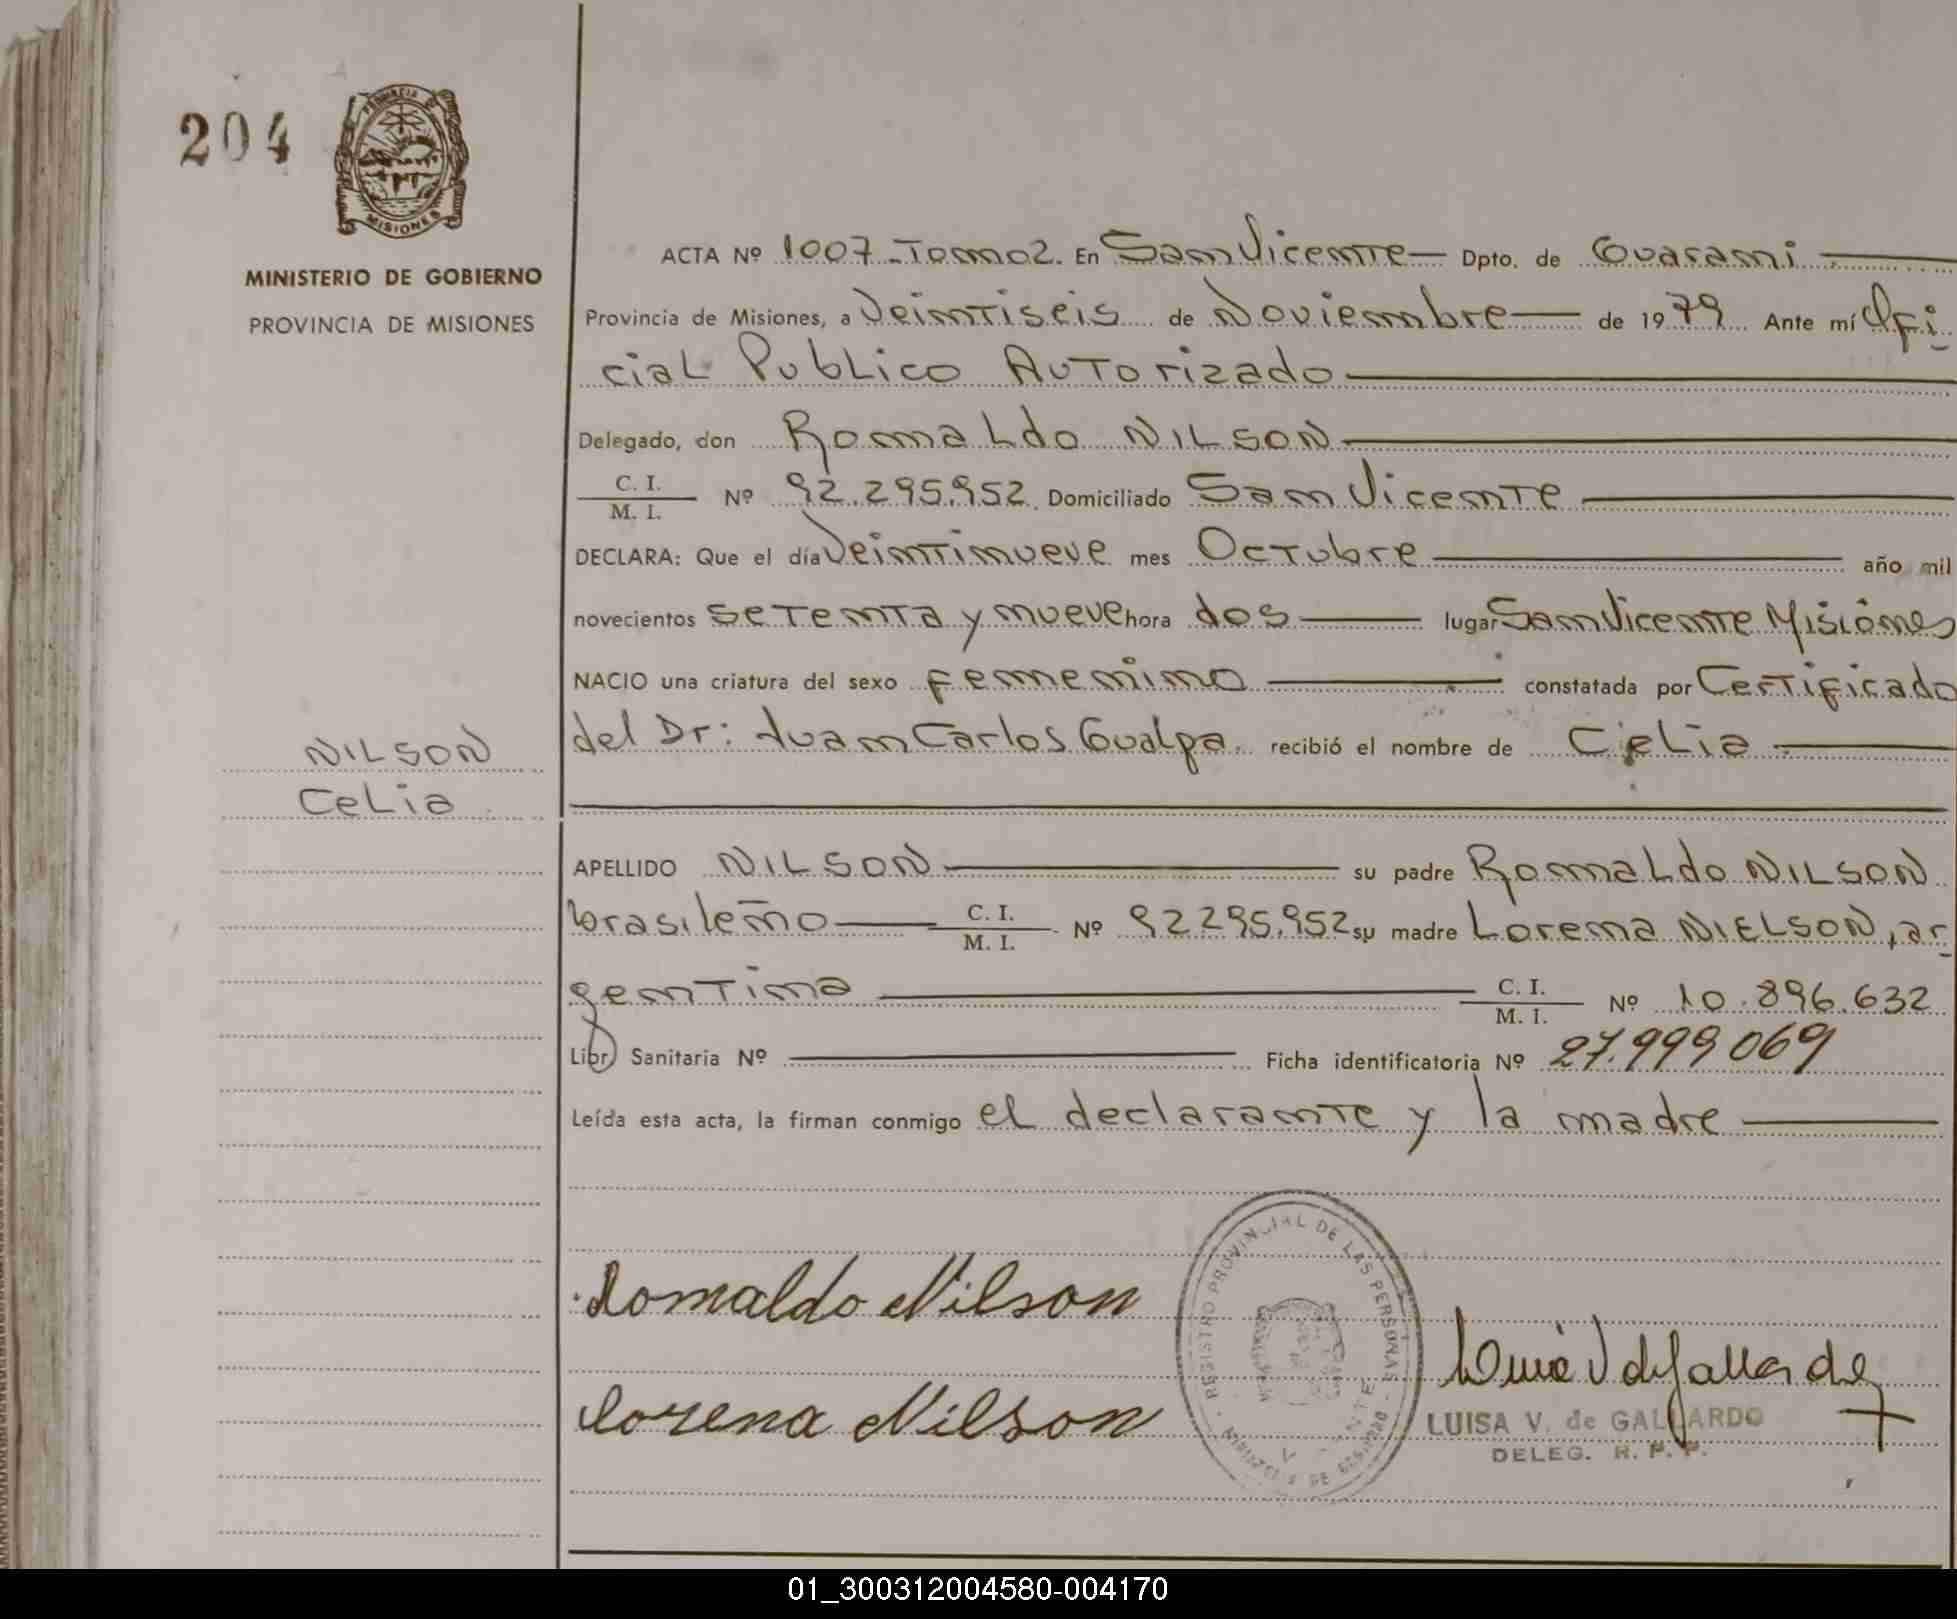 204
PROVINCIA DE
MISIONES
MINISTERIO DE GOBIERNO
PROVINCIA DE MISIONES
ACTA Nº 1007 - Tomo 2. En San Vicente — Dpto. de Guarani —
Provincia de Misiones, a Veintiseis de Noviembre — de 1979 Ante mí Ofi
cial Publico Autorizado —
Delegado, don Romaldo NILSON —
C. I.
M. I. Nº 92.295.952. Domiciliado San Vicente —
DECLARA: Que el día Veintinueve mes Octubre — año mil
novecientos setenta y nueve hora dos — lugar San Vicente Misiones
NACIO una criatura del sexo femenino — constatada por Certificado
del Dr: Juan Carlos Gualpa recibió el nombre de Celia —
NILSON
Celia
APELLIDO NILSON — su padre Romaldo NILSON
brasileño — C. I.
M. I. Nº 92295.952 su madre Lorena NIELSON, ar
gentina — C. I.
M. I. Nº 10.896.632
Libr Sanitaria Nº — Ficha identificatoria Nº 27.999069
Leída esta acta, la firman conmigo el declarante y la madre —
REGISTRO PROVINCIAL DE LAS PERSONAS
DE GOBIERNO
Romaldo Nilson
Lorena Nilson
Luisa V de Gallardo
LUISA V. de GALLARDO
DELEG. R. P. P.
01_300312004580-004170